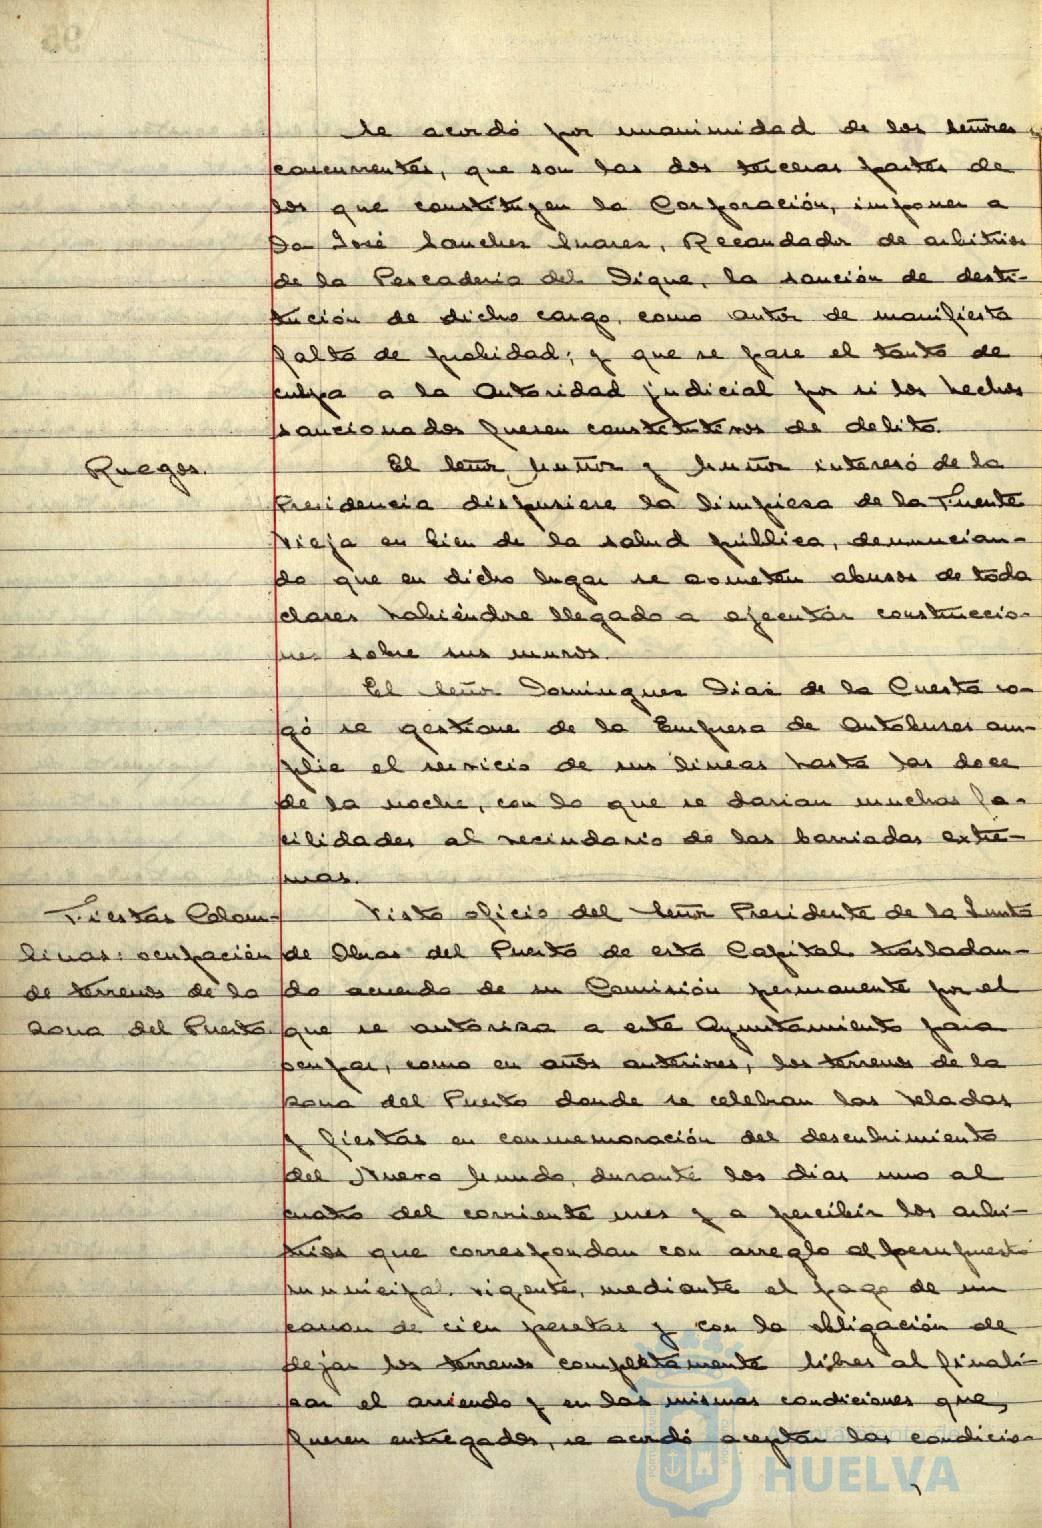 Se acordó por unanimidad de los señores
concurrentes, que son las dos terceras partes de
los que constituyen la Corporación, imponer a
Don José Sanchez Suarez, Recaudador de arbitrios
de la Pescaderia del Dique, la sanción de desti-
tución de dicho cargo, como autor de manifiesta
falta de probidad; y que se pase el tanto de
culpa a la Autoridad judicial por si los hechos
sancionados fuesen constitutivos de delito.
Ruegos.
El señor Muñoz y Muñoz interesó de la
Presidencia dispusiese la limpieza de la Fuente
Vieja en bien de la salud pública, denuncian-
do que en dicho lugar se cometen abusos de toda
clases habiéndose llegado a ejecutar construccio-
nes sobre sus muros.
El señor Dominguez Diaz de la Cuesta ro-
gó se gestione de la Empresa de Autobuses am-
plie el servicio de sus lineas hasta las doce
de la noche, con lo que se darian muchas fa-
cilidades al vecindario de las barriadas extre-
mas.
Fiestas Colom-
binas: ocupación
de terrenos de la
zona del Puerto
Visto oficio del señor Presidente de la Junta
de Obras del Puerto de esta Capital trasladan-
do acuerdo de su Comisión permanente por el
que se autoriza a este Ayuntamiento para
ocupar, como en años anteriores, los terrenos de la
zona del Puerto donde se celebran las veladas
y fiestas en conmemoración del descubrimiento
del Nuevo Mundo, durante los dias uno al
cuatro del corriente mes y a percibir los arbi-
trios que correspondan con arreglo al presupuesto
municipal vigente, mediante el pago de un
canon de cien pesetas y con la obligación de
dejar los terrenos completamente libres al finali-
zar el arriendo y en las mismas condiciones que
fueren entregados, se acordó aceptar las condicio-
HUELVA